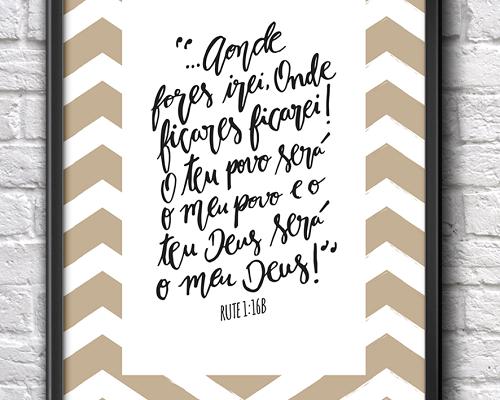 “...Aonde
fores irei, Onde
ficares ficarei!
O teu povo será
o meu povo e o
teu Deus será
o meu Deus!”
RUTE 1:16B